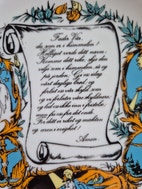 Fader Vår
du som är i himmelen!
Helgat varde ditt namn.
Komme ditt rike. Ske din
vilja som i himmelen så ock
på jorden. Giv oss idag
vårt dagliga bröd, och
förlåt oss våra skulder, som
ock vi förlåta dem oss skyldiga äro,
och inled oss icke i frestelse,
utan fräls oss ifrån ondo.
För ditt är riket och makten
och äran i evighet!
Amen